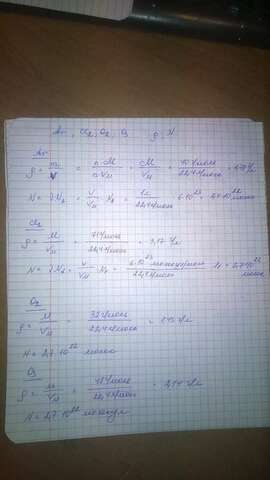 Ar, Cl2, O2, O3 ρ, N
Ar
ρ = m/V = n·M/n·VM = M/VM = 40 г/моль / 22,4 л/моль = 1,78 г/л
N = ν·NA = V/VM · NA = 1л / 22,4 л/моль · 6·10^23 = 2,7·10^22
Cl2
ρ = M/VM = 71 г/моль / 22,4 л/моль = 3,17 г/л
N = ν·NA = V/VM · NA = 6·10^23 молекул/моль / 22,4 л/моль · 1л = 2,7·10^22
O2
ρ = M/VM = 32 г/моль / 22,4 л/моль = г/л
N = 2,7·10^22
O3
ρ = M/VM = 48 г/моль / 22,4 л/моль = 2,14 г/л
N = 2,7·10^22 молекул